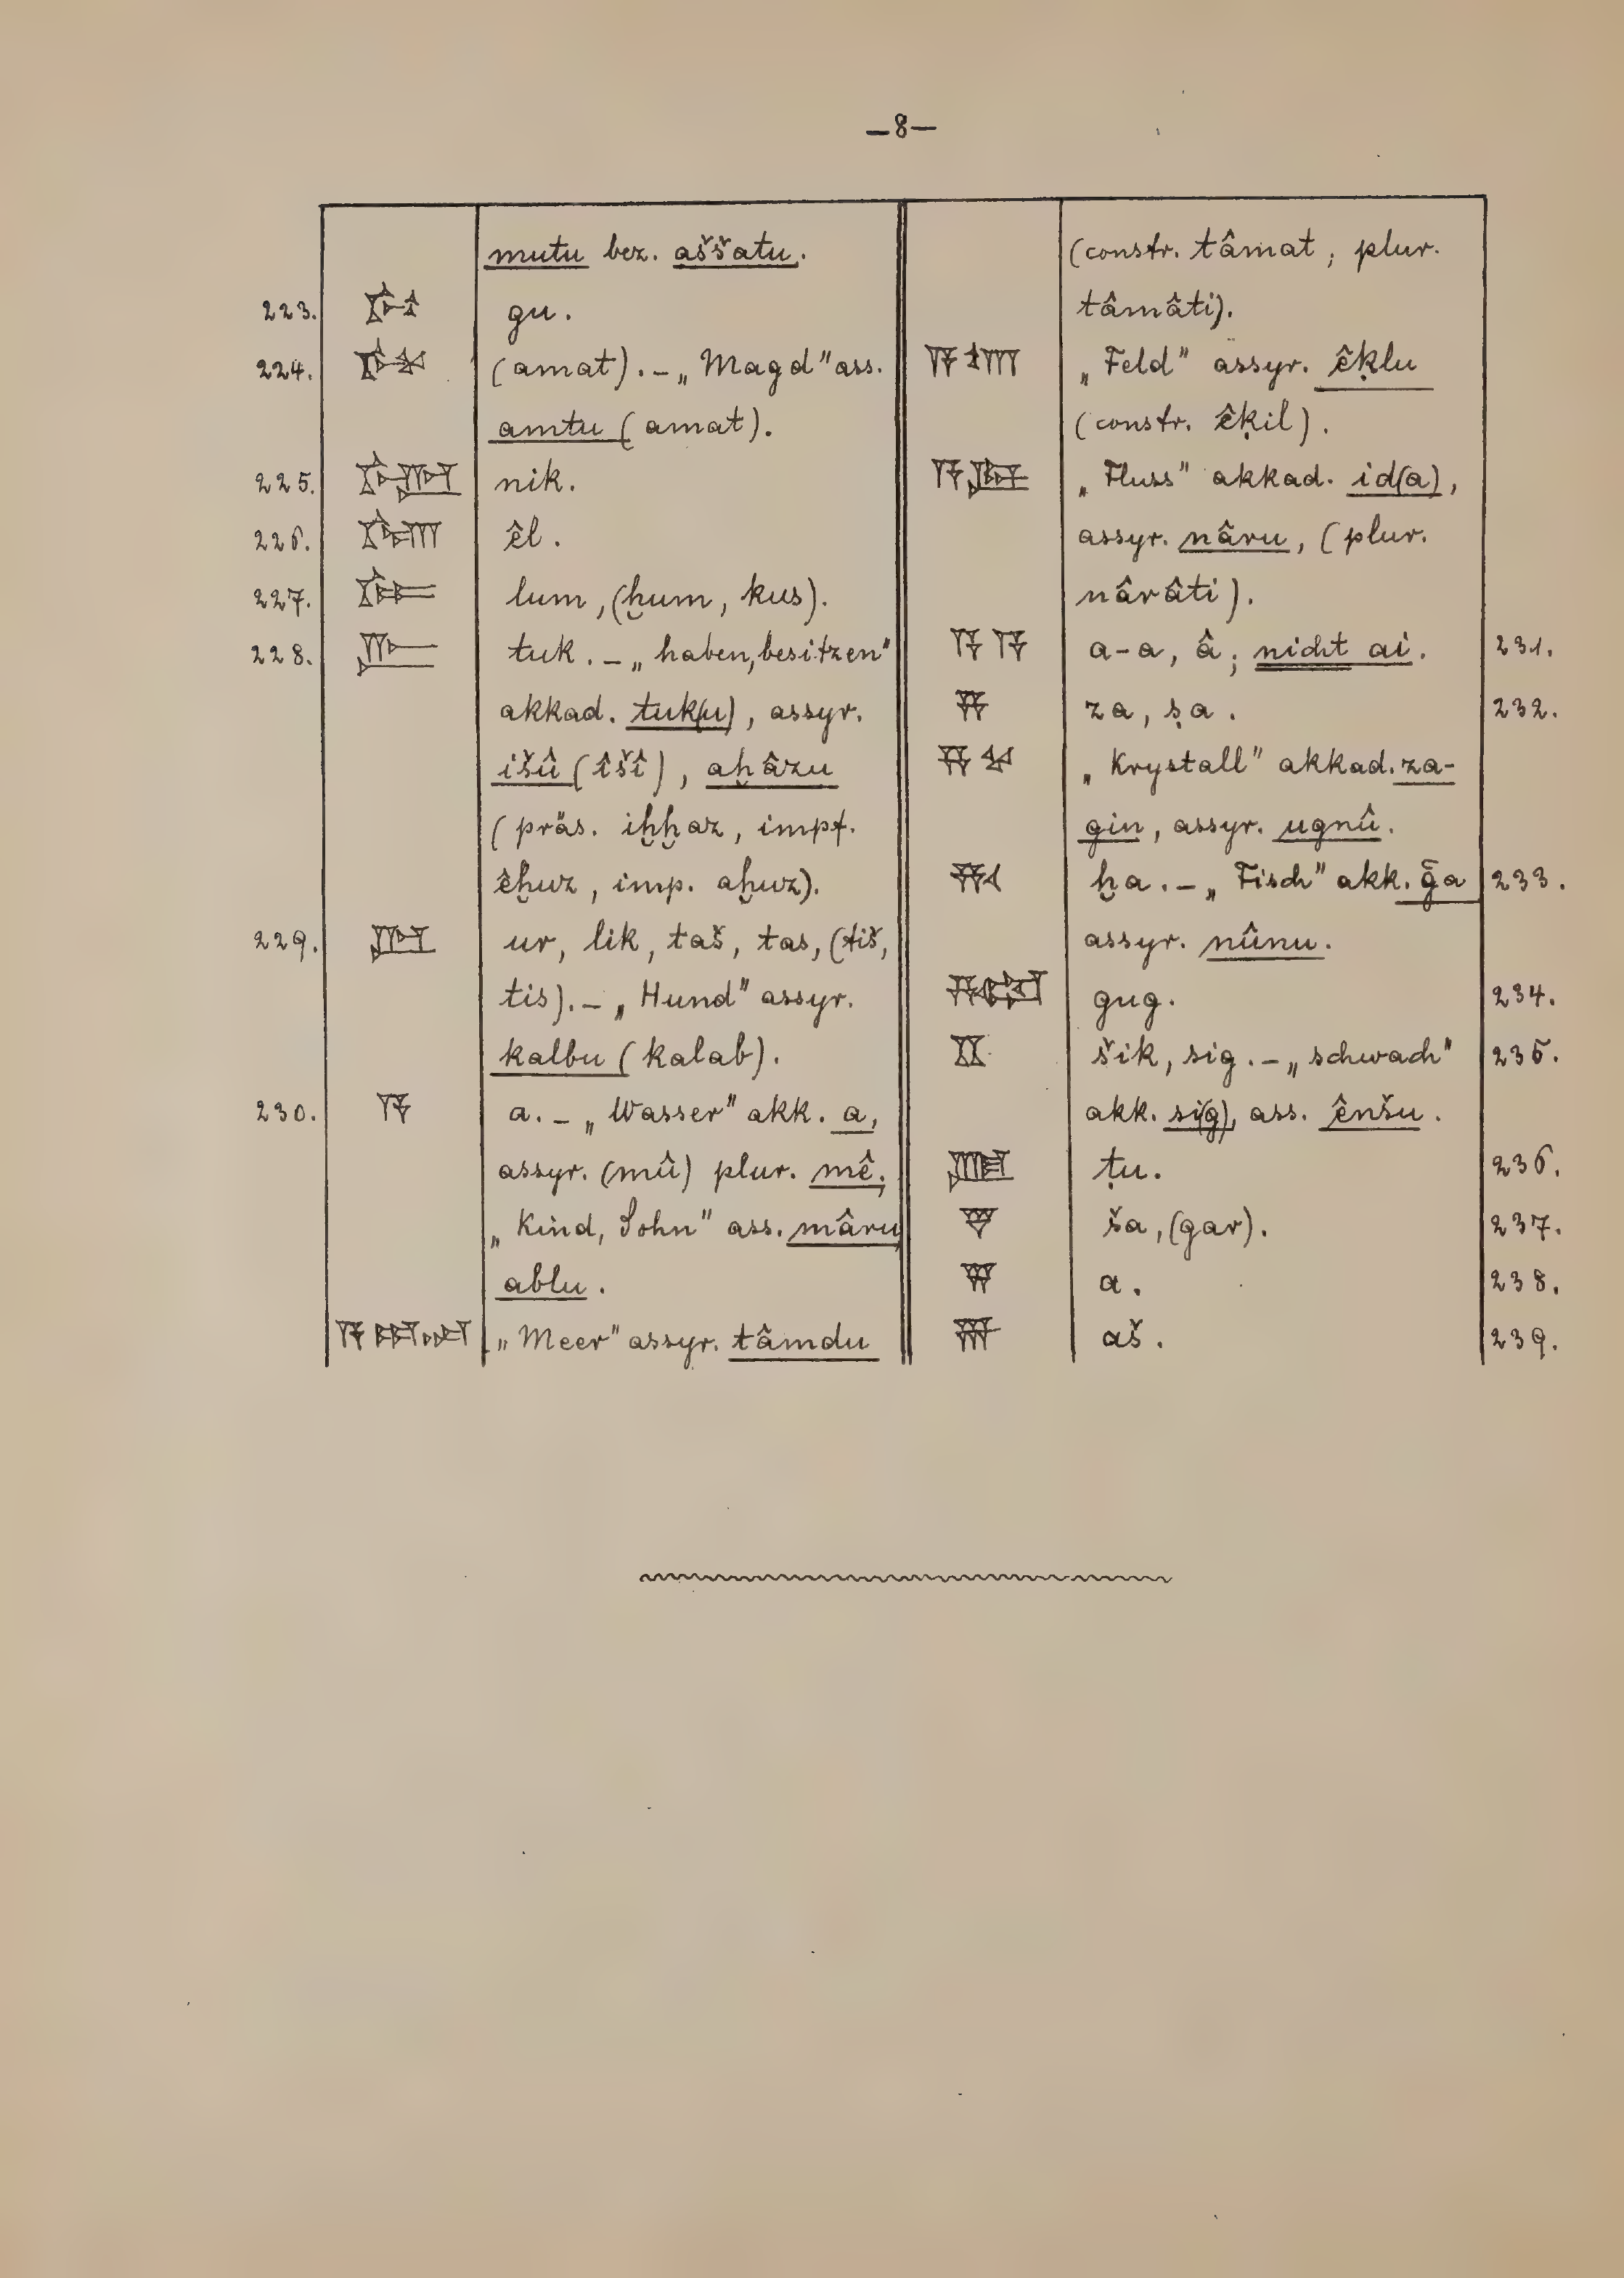 —8—
mutu bez. aššatu.
223. gu.
224. (amat). – „Magd" ass.
amtu (amat).
225. nik.
226. êl.
227. lum, (ḫum, kus).
228. tuk. – „haben, besitzen"
akkad. tuk(u), assyr.
išû (îšî), aḫâzu
(präs. iḫḫaz, impf.
êḫuz, imp. aḫuz).
229. ur, lik, taš, tas, (tiš,
tis). – „Hund" assyr.
kalbu (kalab).
230. 𒀀 a. – „Wasser" akk. a,
assyr. (mû) plur. mê;
„Kind, Sohn" ass. mâru,
ablu.
„Meer" assyr. tâmdu
(constr. tâmat, plur.
tâmâti).
„Feld" assyr. êḳlu
(constr. êḳil).
„Fluss" akkad. id(a),
assyr. nâru, (plur.
nârâti).
𒀀 𒀀 a-a, â; nicht ai. 231.
𒍝 za, ṣa. 232.
„Krystall" akkad. za-
gin, assyr. ugnû.
𒄩 ḫa. – „Fisch" akk. ḡa 233.
assyr. nûnu.
gug. 234.
šik, sig. – „schwach" 235.
akk. si(g), ass. ênšu.
ṭu. 236.
𒐼 ša, (gar). 237.
a. 238.
aš. 239.